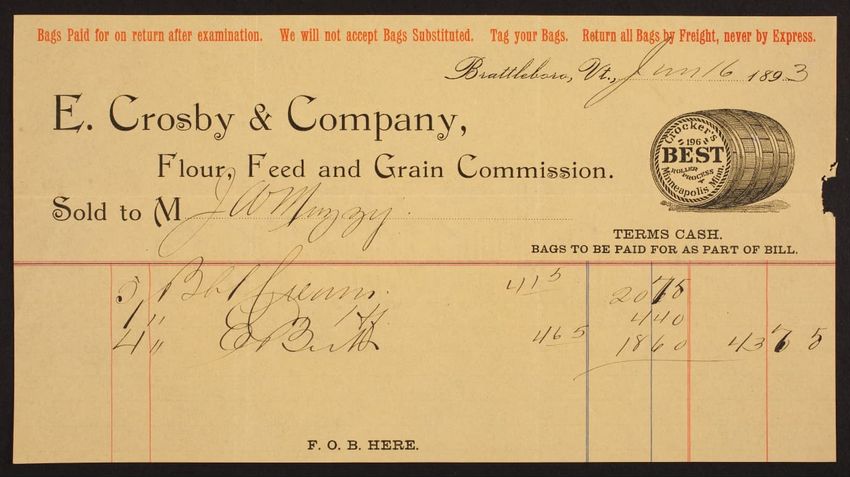 Bags Paid for on return after examination. We will not accept Bags Substituted. Tag your Bags. Return all Bags by Freight, never by Express.
Brattleboro, Vt., Jun 16 1893
E. Crosby & Company,
Flour, Feed and Grain Commission.
Sold to M J W Muzzy
Crocker's
196
BEST
ROLLER PROCESS
Minneapolis Minn.
TERMS CASH.
BAGS TO BE PAID FOR AS PART OF BILL.
5 Bbl Cream 415 2075
1 " 440
4 " C Best 465 1860 4375
F. O. B. HERE.